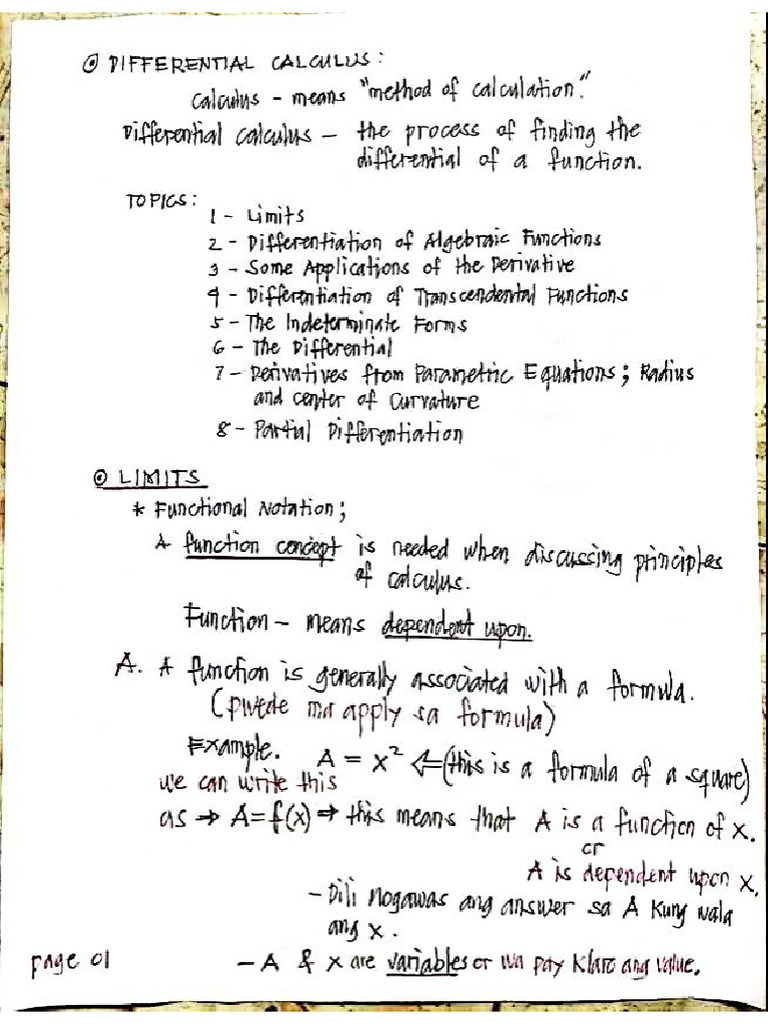 ⊙ DIFFERENTIAL CALCULUS:
Calculus - means "method of calculation."
Differential calculus - the process of finding the
differential of a function.
TOPICS:
1 - Limits
2 - Differentiation of Algebraic Functions
3 - Some Applications of the Derivative
4 - Differentiation of Transcendental Functions
5 - The Indeterminate Forms
6 - The Differential
7 - Derivatives from Parametric Equations; Radius
and center of Curvature
8 - Partial Differentiation
⊙ LIMITS
* Functional Notation;
A function concept is needed when discussing principles
of calculus.
Function - means dependent upon.
A. A function is generally associated with a formula.
(pwede ma apply sa formula)
Example. A = x² ⇐ (this is a formula of a square)
we can write this
as ⇒ A=f(x) ⇒ this means that A is a function of x.
or
A is dependent upon x.
- Dili mogawas ang answer sa A kung wala
ang x.
- A & x are variables or wa pay klaro ang value.
page 01